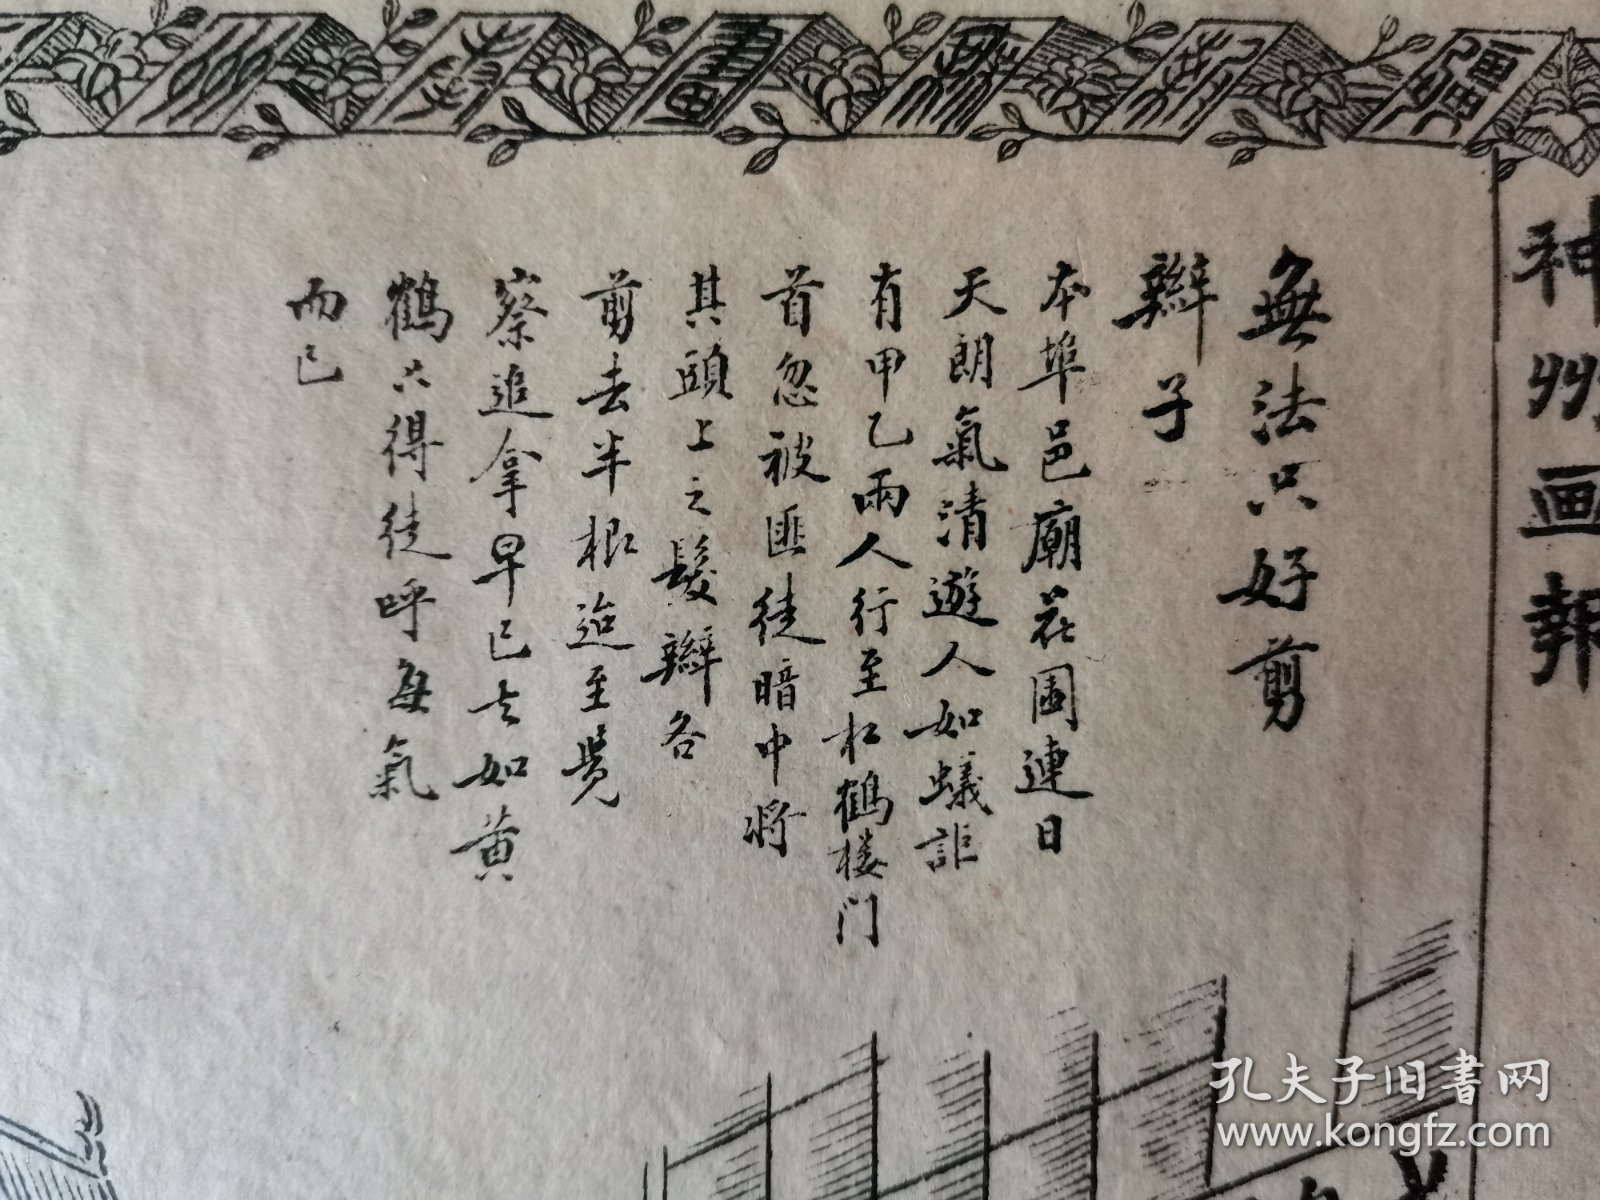 神州画報
無法只好剪
辮子
本埠邑廟花園連日
天朗氣清遊人如蟻詎
有甲乙兩人行至松鶴楼门
首忽被匪徒暗中将
其頭上之髮辮各
剪去半根迨至覺
察追拿早已去如黄
鶴只得徒呼每氣
而已
孔夫子旧書网
www.kongfz.com